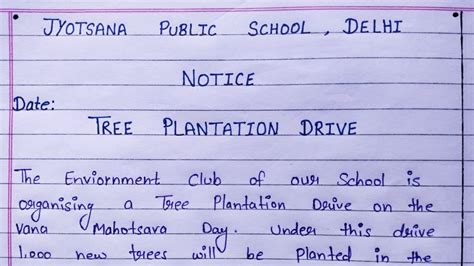 JYOTSANA PUBLIC SCHOOL, DELHI
NOTICE
Date:
TREE PLANTATION DRIVE
The Enviornment Club of our School is
organising a Tree Plantation Drive on the
vana Mahotsava Day. Under this drive
1,000 new trees will be Planted in the